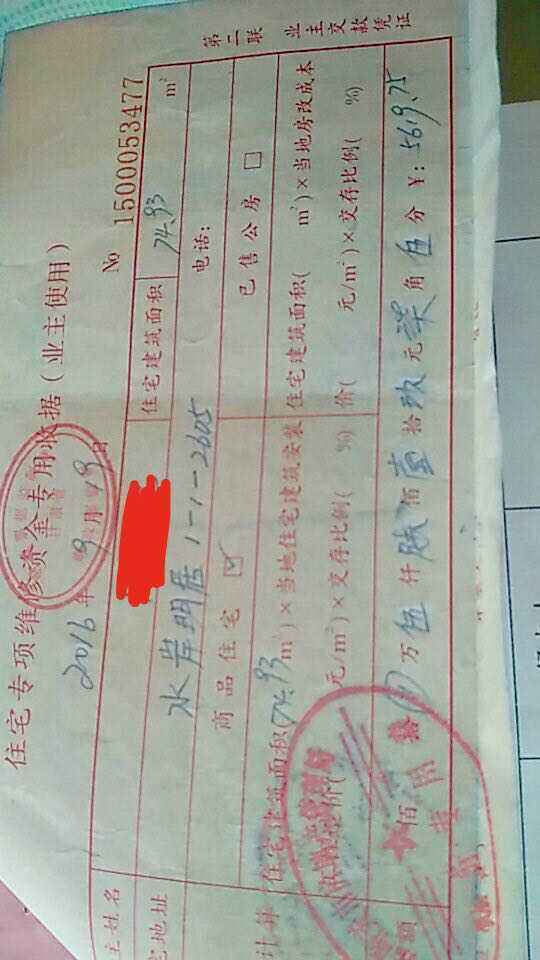 住宅专项维修资金专用收据(业主使用)
2016年9月19日
No 1500053477
第二联 业主交款凭证
主姓名
住宅建筑面积 74.93 m²
宅地址 水岸明居1-1-2605
电话:
商品住宅 ☑
已售公房 □
计算
住宅建筑面积(74.93m²)×当地住宅建筑安装
价(元/m²)×交存比例( %)
住宅建筑面积( m²)×当地房改成本
价( 元/m²)×交存比例( %)
佰 拾 万伍仟陆佰壹拾玖元柒角伍分 ¥:5619.75